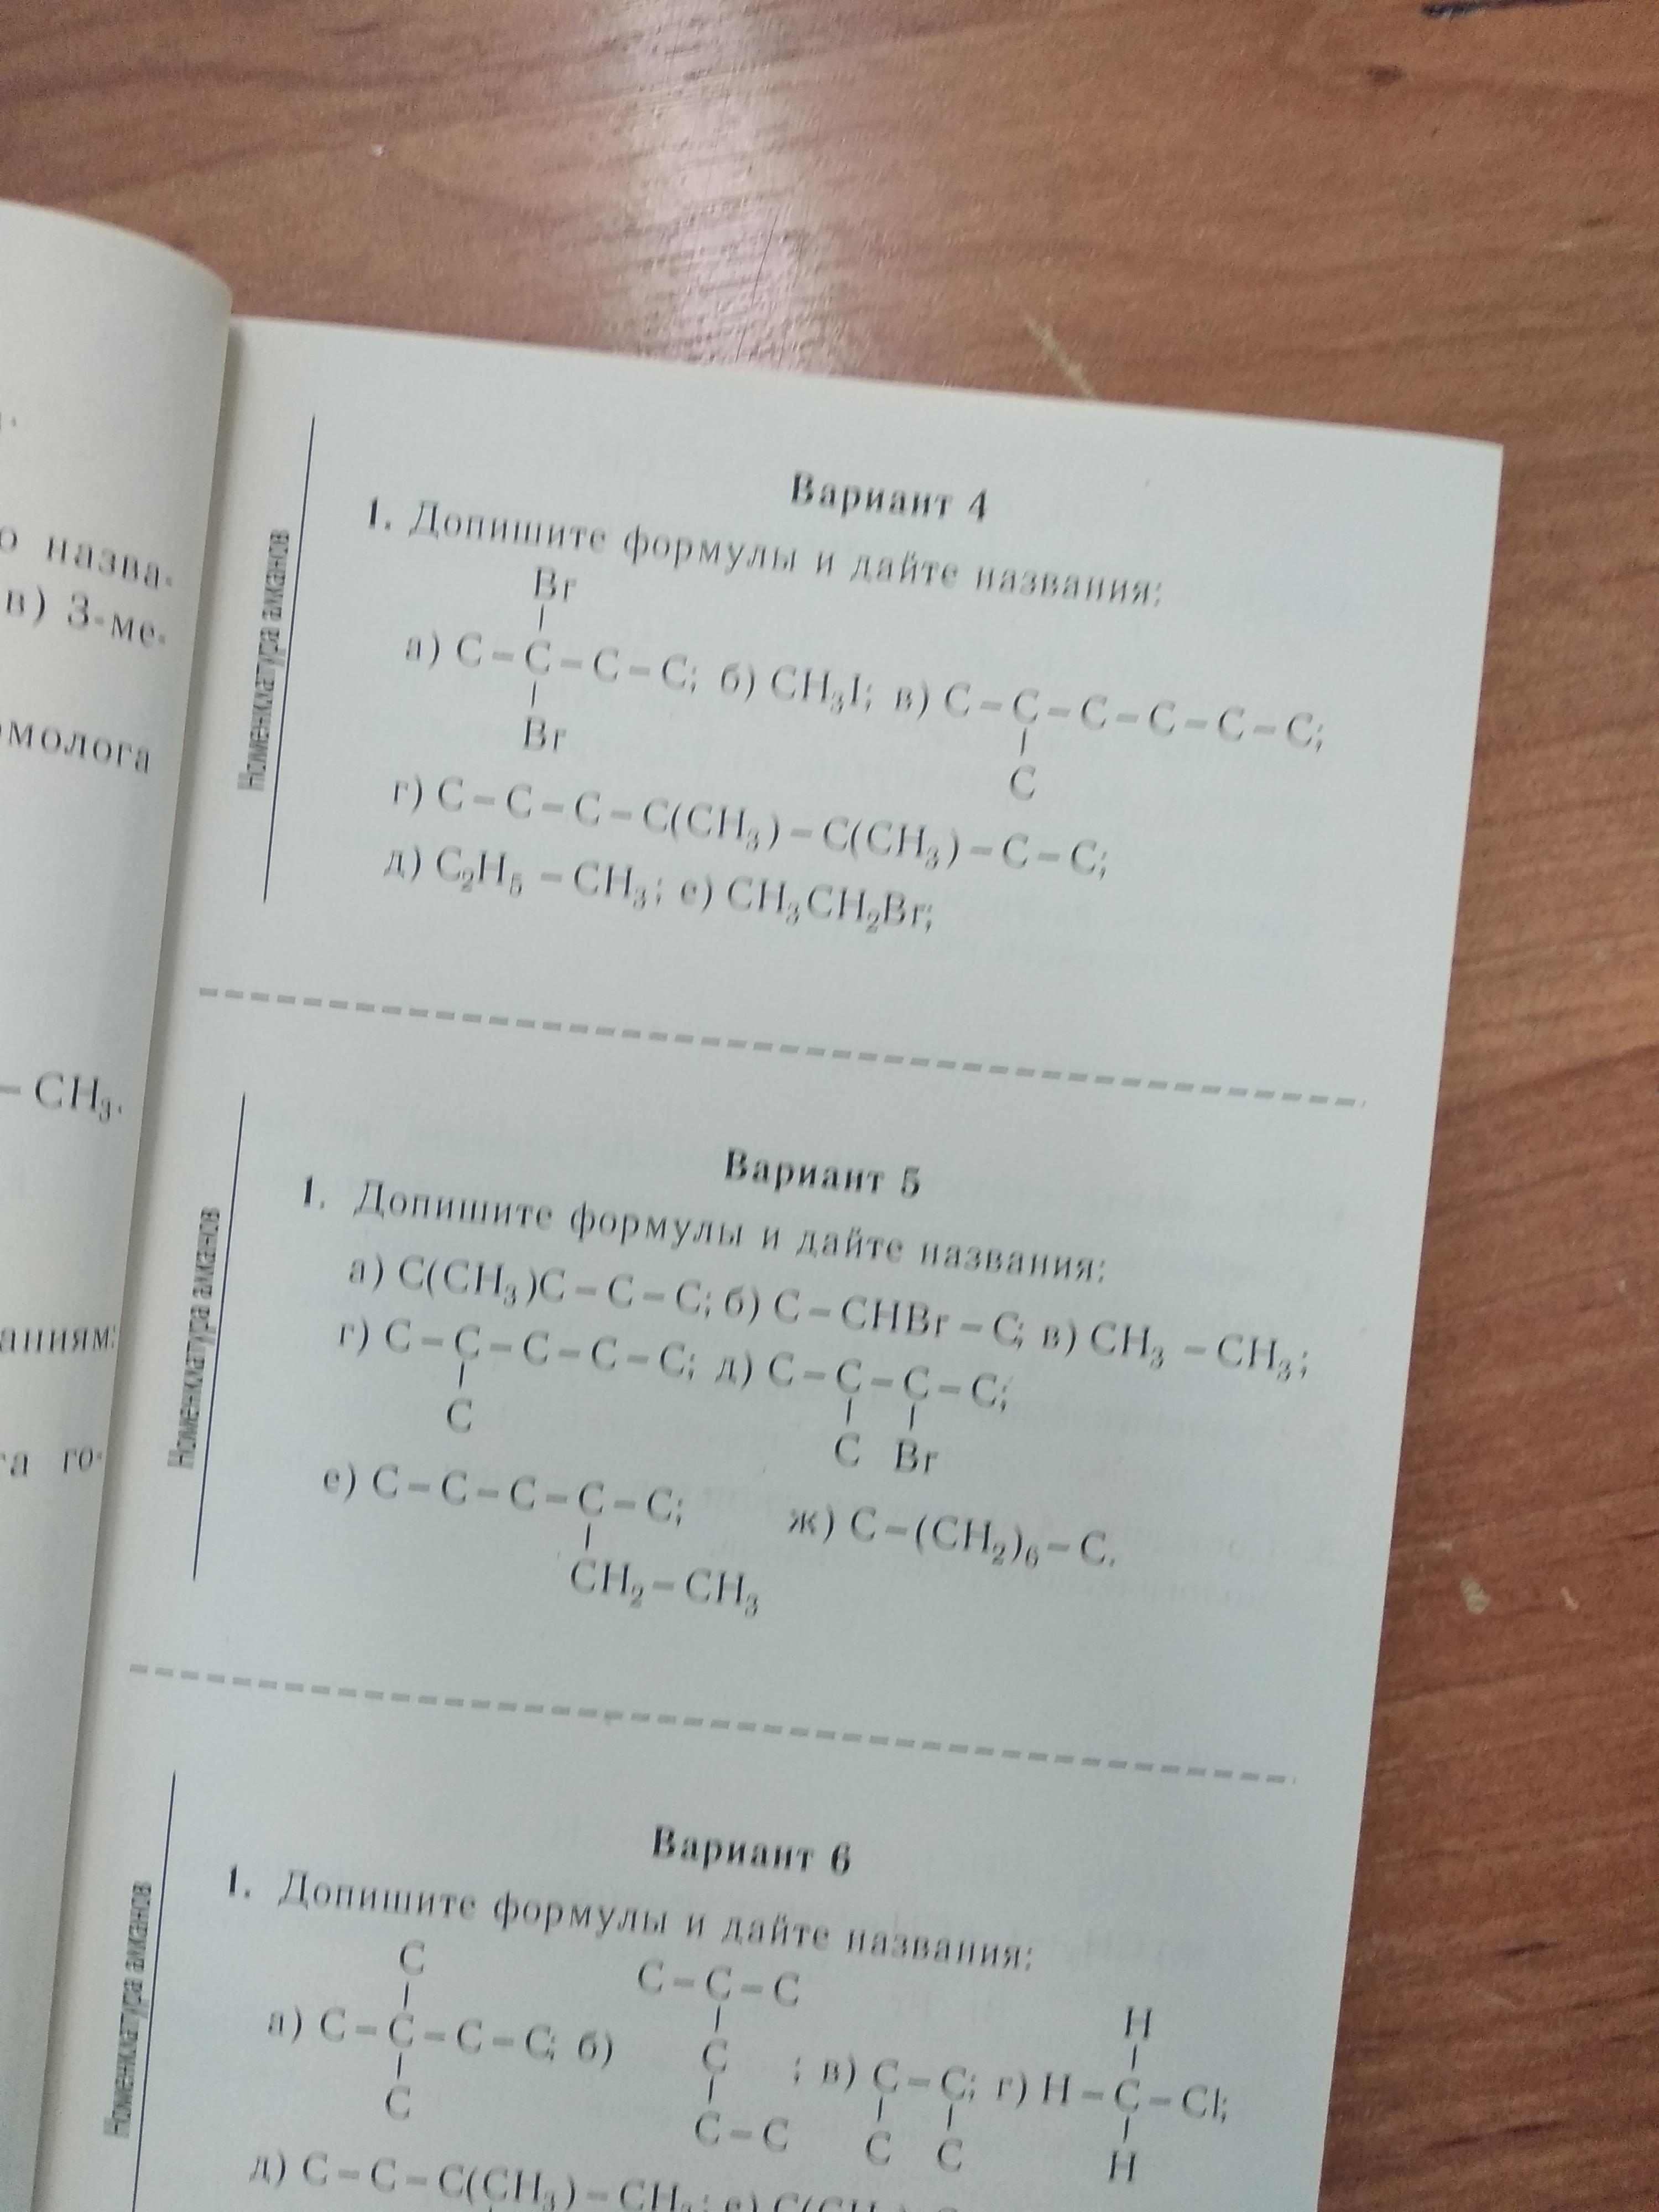 о назва-
в) 3-ме-
омолога
– CH₃.
аниям:
та го-
Номенклатура алканов
Вариант 4
1. Допишите формулы и дайте названия:
Br
|
а) C – C – C – C; б) CH₃I; в) C – C – C – C – C – C;
| |
Br C
г) C – C – C – C(CH₃) – C(CH₃) – C – C;
д) C₂H₅ – CH₃; е) CH₃CH₂Br;
Номенклатура алканов
Вариант 5
1. Допишите формулы и дайте названия:
а) C(CH₃)C – C – C; б) C – CHBr – C; в) CH₃ – CH₃;
г) C – C – C – C – C; д) C – C – C – C;
| | |
C C Br
е) C – C – C – C – C; ж) C – (CH₂)₆ – C.
|
CH₂ – CH₃
Номенклатура алканов
Вариант 6
1. Допишите формулы и дайте названия:
C C – C – C H
| | |
а) C – C – C – C; б) C ; в) C – C; г) H – C – Cl;
| | | | |
C C – C C C H
д) C – C – C(CH₃) – CH₃; е)